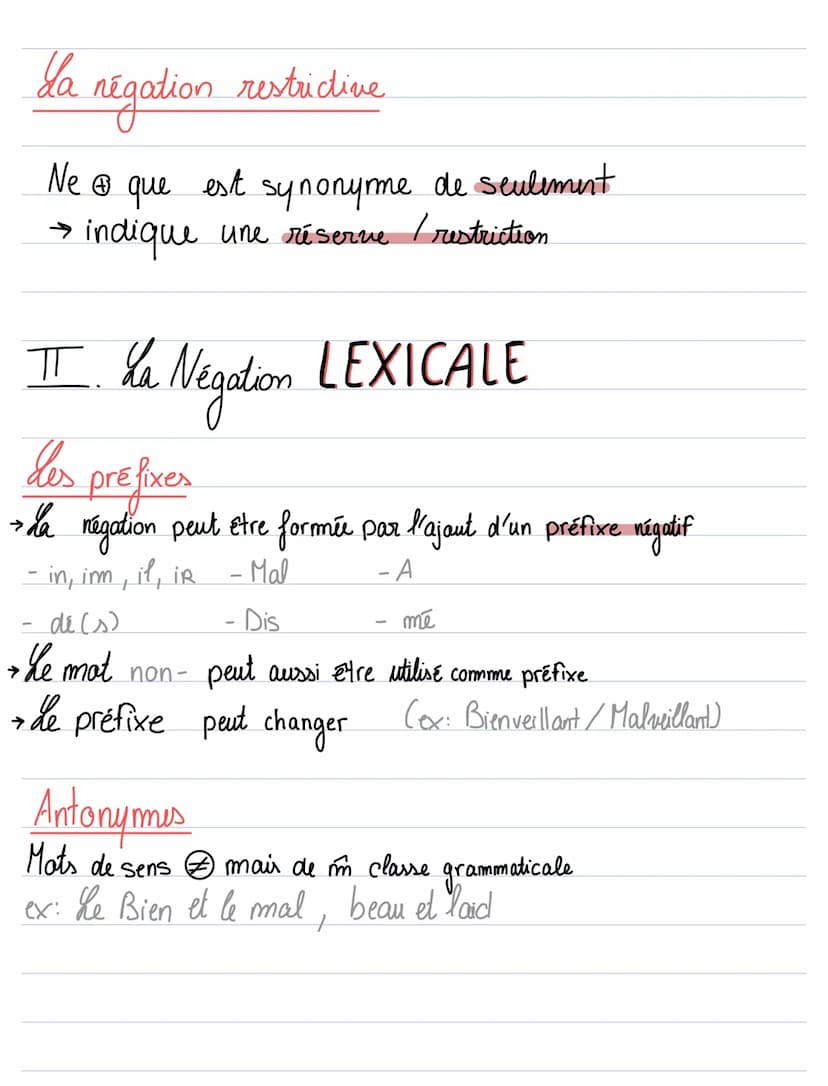 La négation restrictive
Ne ⊕ que est synonyme de seulement
→ indique une réserve / restriction
II. La Négation LEXICALE
Les préfixes
→ La négation peut être formée par l'ajout d'un préfixe négatif
- in, im, il, iR - Mal - A
- dé(s) - Dis - mé
→ Le mot non- peut aussi être utilisé comme préfixe
→ Le préfixe peut changer (ex: Bienveillant / Malveillant)
Antonymes
Mots de sens ≠ mais de m̂ classe grammaticale
ex: Le Bien et le mal, beau et laid